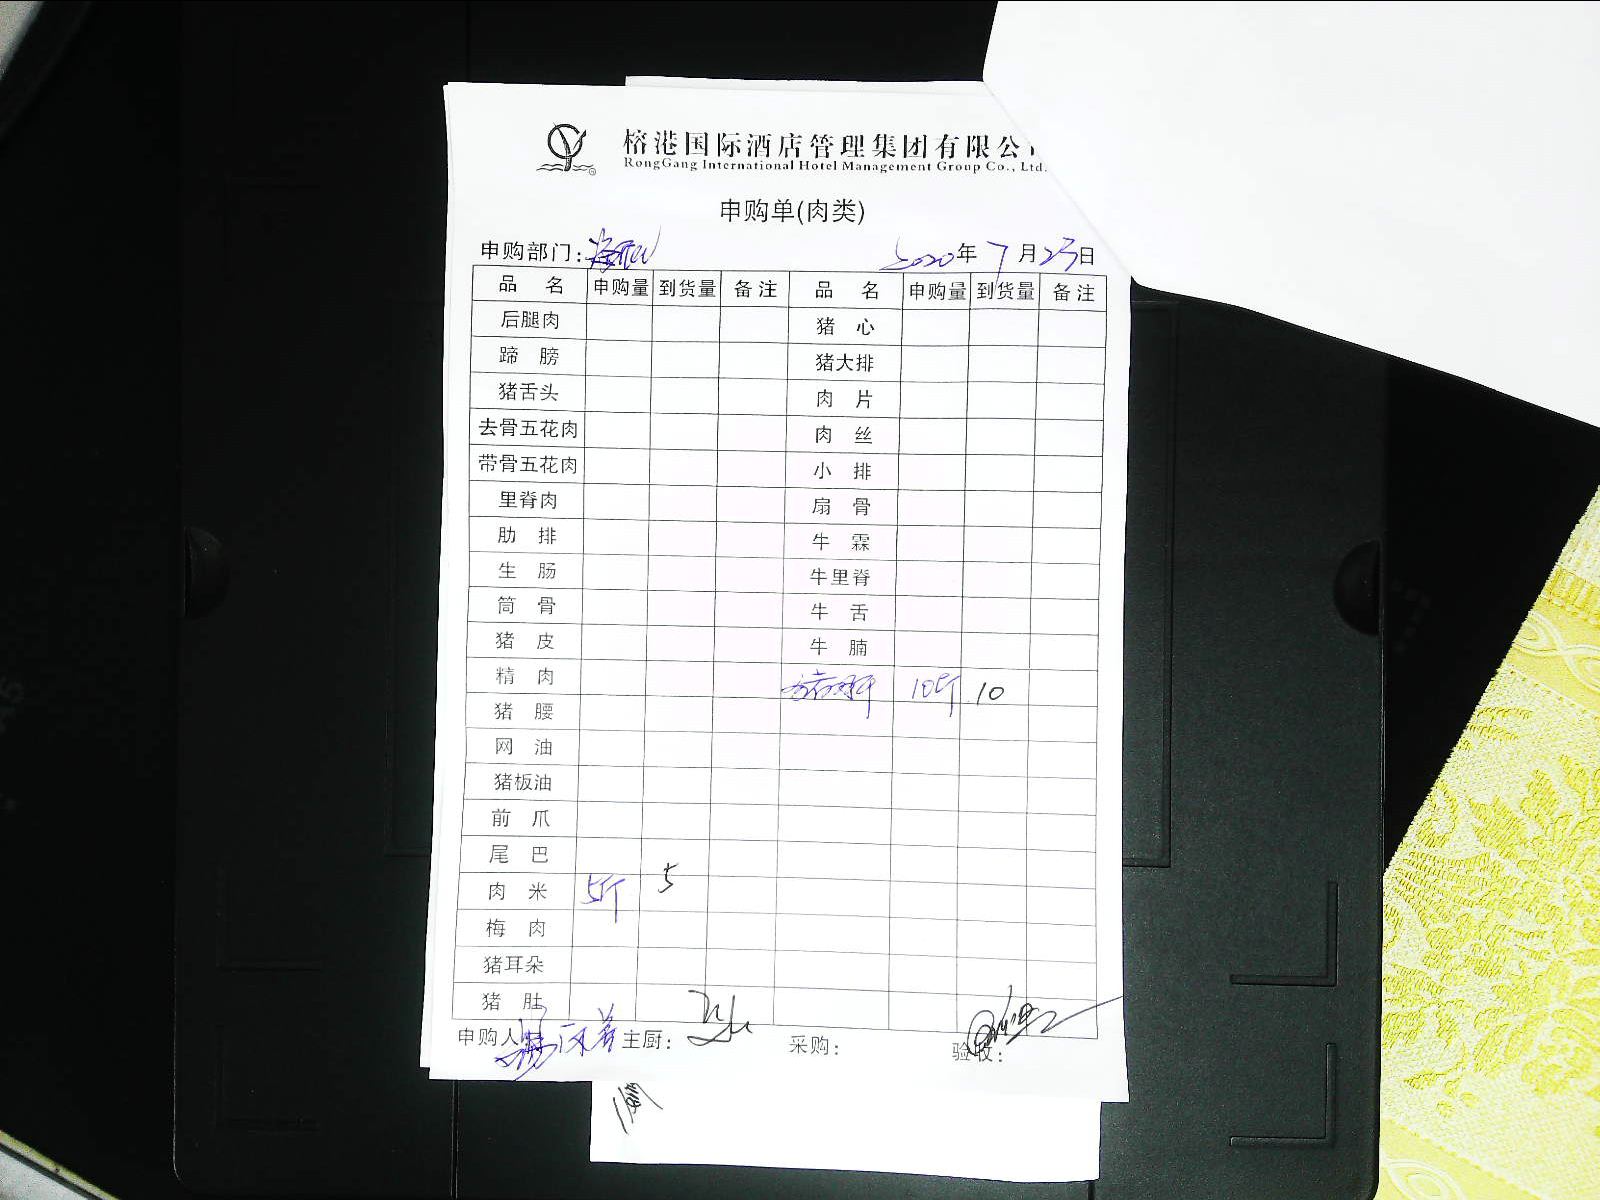 榕港国际酒店管理集团有限公
RongGang International Hotel Management Group Co., Ltd.
申购单(肉类)
申购部门: 2020年7月23日
品 名 申购量 到货量 备注 品 名 申购量 到货量 备注
后腿肉 猪 心
蹄 膀 猪大排
猪舌头 肉 片
去骨五花肉 肉 丝
带骨五花肉 小 排
里脊肉 扇 骨
肋 排 牛 霖
生 肠 牛里脊
筒 骨 牛 舌
猪 皮 牛 腩
精 肉 猪脚 10斤 10
猪 腰
网 油
猪板油
前 爪
尾 巴
肉 米 5斤 5
梅 肉
猪耳朵
猪 肚
申购人: 主厨: 采购: 验收: